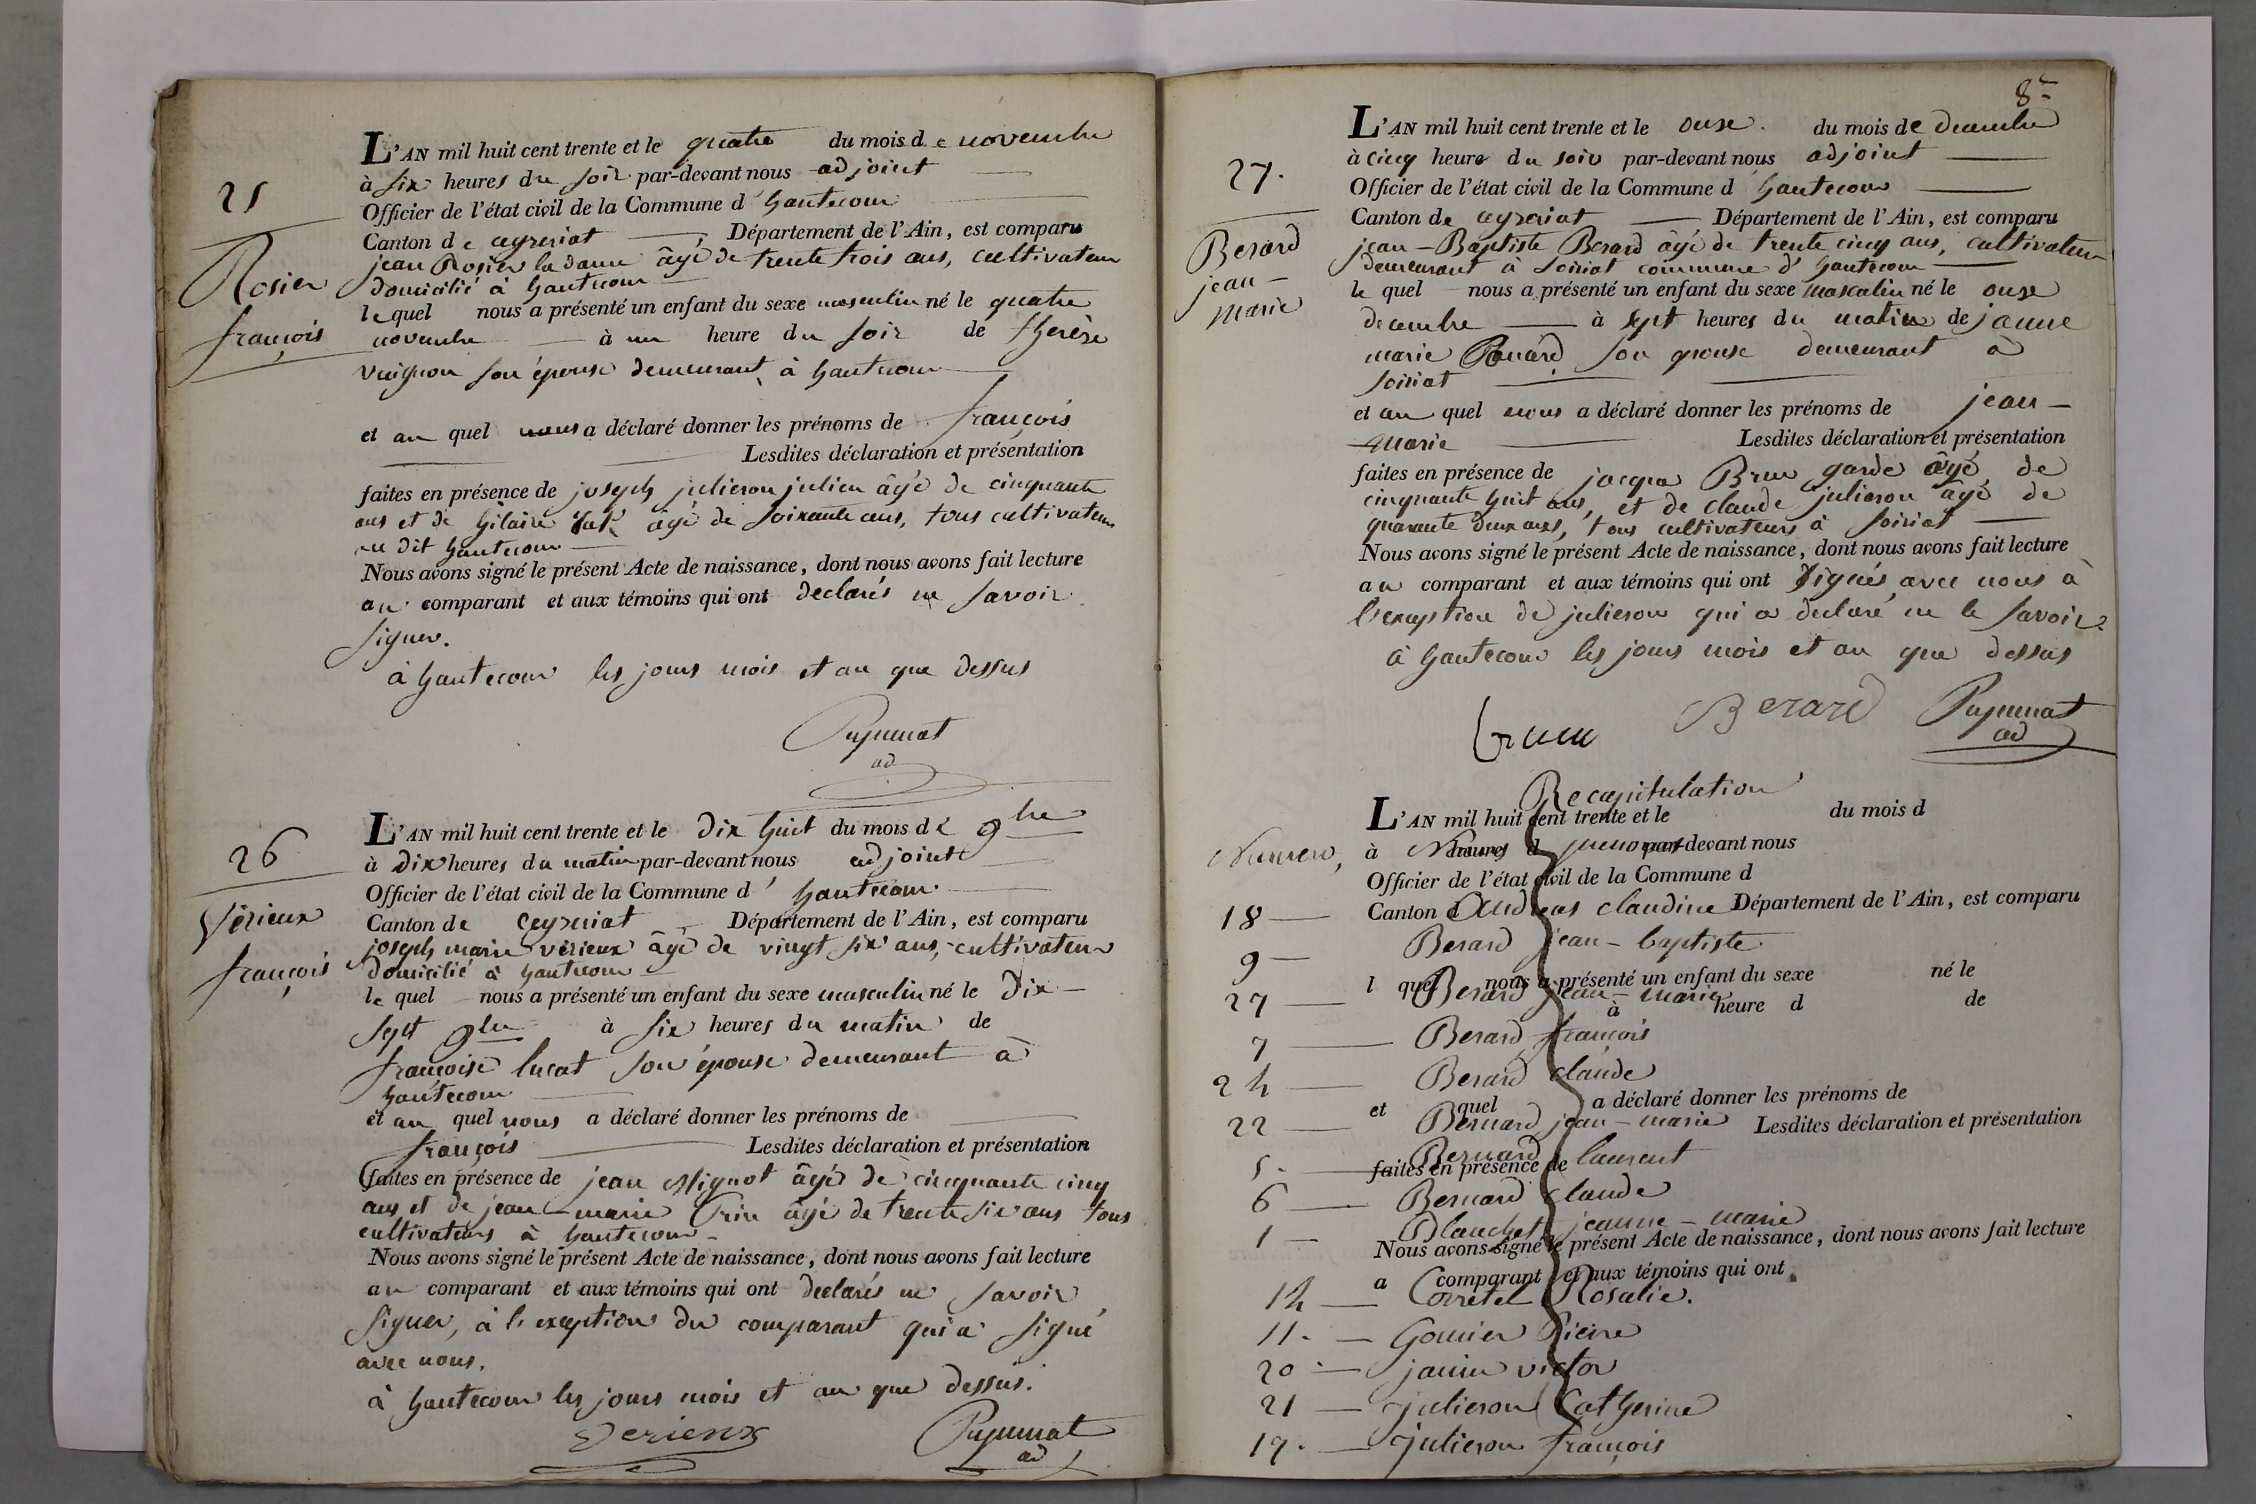 25
Rosier
françois
L'AN mil huit cent trente et le quatre du mois de novembre
à six heures du soir par-devant nous adjoint
Officier de l'état civil de la Commune d'hautecour
Canton de ceyzeriat Département de l'Ain, est comparu
jean Rosier ladame âgé de trente trois ans, cultivateur
domicilié à hautecour
lequel nous a présenté un enfant du sexe masculin né le quatre
novembre à un heure du soir de thérèse
vuignon son épouse demeurant à hautecour
et au quel nous a déclaré donner les prénoms de françois
Lesdites déclaration et présentation
faites en présence de joseph julieron julien âgé de cinquante
ans et de hilaire âgé de soixante ans, tous cultivateurs
au dit hautecour
Nous avons signé le présent Acte de naissance, dont nous avons fait lecture
au comparant et aux témoins qui ont declarés ne savoir
signer.
à hautecour les jours mois et an que dessus
Pupunat
ad
26
Vérieux
françois
L'AN mil huit cent trente et le dix huit du mois de 9bre
à dix heures du matin par-devant nous adjoint
Officier de l'état civil de la Commune d'hautecour
Canton de ceyzeriat Département de l'Ain, est comparu
joseph marie vérieux âgé de vingt six ans, cultivateur
domicilié à hautecour
le quel nous a présenté un enfant du sexe masculin né le dix-
sept 9bre à six heures du matin de
françoise lucat son épouse demeurant à
hautecour
et au quel nous a déclaré donner les prénoms de
françois Lesdites déclaration et présentation
faites en présence de jean Mignot âgé de cinquante cinq
ans et de jean-marie Prin âgé de trente six ans tous
cultivateurs à hautecour
Nous avons signé le présent Acte de naissance, dont nous avons fait lecture
au comparant et aux témoins qui ont declarés ne savoir
signer, à l'exception du comparant qui a signé
avec nous.
à hautecour les jours mois et an que dessus.
Verieux Pupunat
ad
8e
27.
Berard
jean-
marie
L'AN mil huit cent trente et le onze du mois de decembre
à cinq heure du soir par-devant nous adjoint
Officier de l'état civil de la Commune d'hautecour
Canton de ceyzeriat Département de l'Ain, est comparu
jean-Baptiste Berard âgé de trente cinq ans, cultivateur
demeurant à soiriat commune d'hautecour
le quel nous a présenté un enfant du sexe masculin né le onze
decembre à sept heures du matin de janne
marie son epouse demeurant à
soiriat
et au quel nous a déclaré donner les prénoms de jean-
marie Lesdites déclaration et présentation
faites en présence de jacque Brun garde âgé de
cinquante huit ans, et de claude julieron âgé de
quarante deux ans, tous cultivateurs à soiriat
Nous avons signé le présent Acte de naissance, dont nous avons fait lecture
au comparant et aux témoins qui ont signés avec nous à
l'exception de julieron qui a declaré ne le savoir
à hautecour les jours mois et an que dessus
Brun Berard Pupunat
ad
Recapitulation
L'AN mil huit cent trente et le du mois d
Numero, à heures d par-devant nous
Noms prenoms
Officier de l'état civil de la Commune d
Canton d Département de l'Ain, est comparu
18 — Andreas claudine
9 — Berard jean-baptiste
l quel nous a présenté un enfant du sexe né le
27 — Berard jean-marie
à heure d de
7 — Berard françois
24 — Berard claude
et quel a déclaré donner les prénoms de
22 — Bernard jean-marie Lesdites déclaration et présentation
5. — Bernard laurent
faites en présence de
6 — Bernard claude
1 — Blanchet jeanne-marie
Nous avons signé le présent Acte de naissance, dont nous avons fait lecture
a comparant et aux témoins qui ont
14 — Corretel Rosalie.
11. — Gomier Pierre
20 — janin victor
21 — julieron Catherine
19. — julieron françois